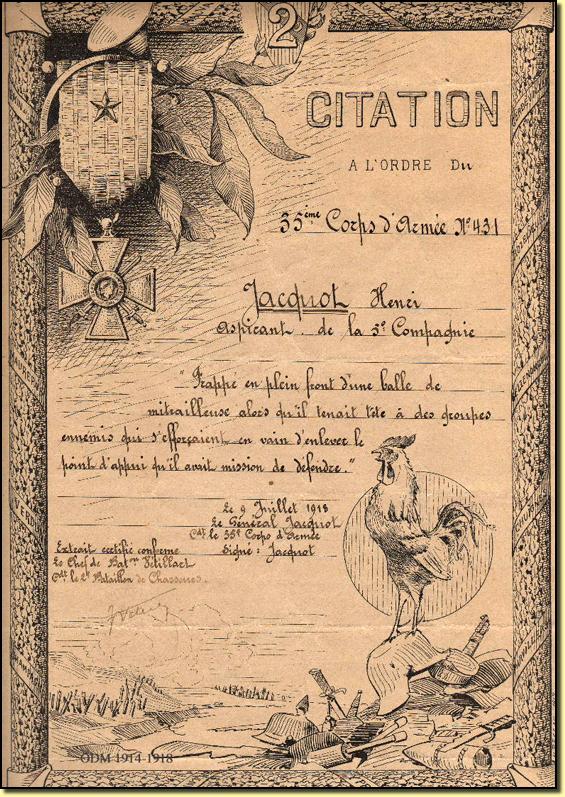 2
CITATION
A L'ORDRE DU
35ème Corps d'Armée No 431
Jacquot Henri
Aspirant de la 5e Compagnie
"Frappé en plein front d'une balle de
mitrailleuse alors qu'il tenait tête à des groupes
ennemis qui s'efforçaient en vain d'enlever le
point d'appui qu'il avait mission de défendre."
Le 9 Juillet 1918
Le Général Jacquot
Cdt le 35e Corps d'Armée
Signé : Jacquot
Extrait certifié conforme
Le Chef de Baton Pétillart
Cdt le 2e Bataillon de Chasseurs.
ODM 1914-1918